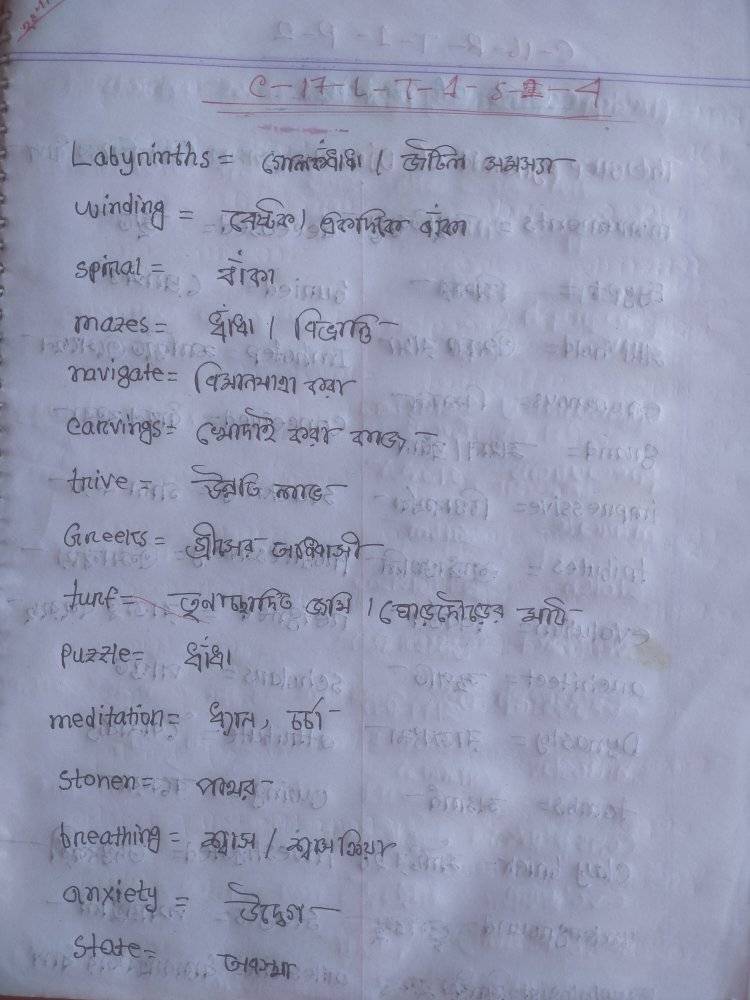 C-17-L-T-1-S-4
Labyrinths = গোলকধাঁধা / জটিল
winding = বেষ্টন / একদিকে বাঁকা
spiral = বাঁকা
mazes = ধাঁধা / বিভ্রান্তি
navigate = বিমানযাত্রা করা
carvings = খোদাই করা কাজ
trive = উন্নতি লাভ
Greeks = গ্রীসের অধিবাসী
turf = তৃনাচ্ছাদিত জমি / ঘোড়দৌড়ের মাঠ
puzzle = ধাঁধা
meditation = ধ্যান, চর্চা
Stonen = পাথর
breathing = শ্বাস / শ্বাসক্রিয়া
anxiety = উদ্বেগ
State = অবস্থা